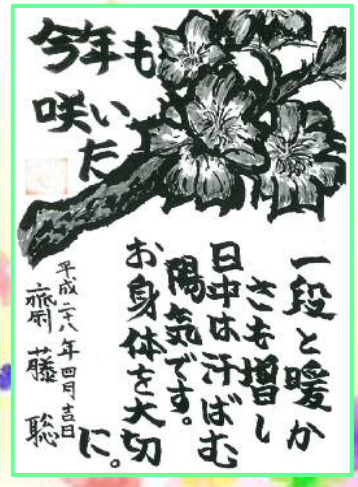 今年も
咲いた
一段と暖か
さも増し
日中は汗ばむ
陽気です。
お身体を大切
に。
平成二十八年四月吉日
齋藤 聡